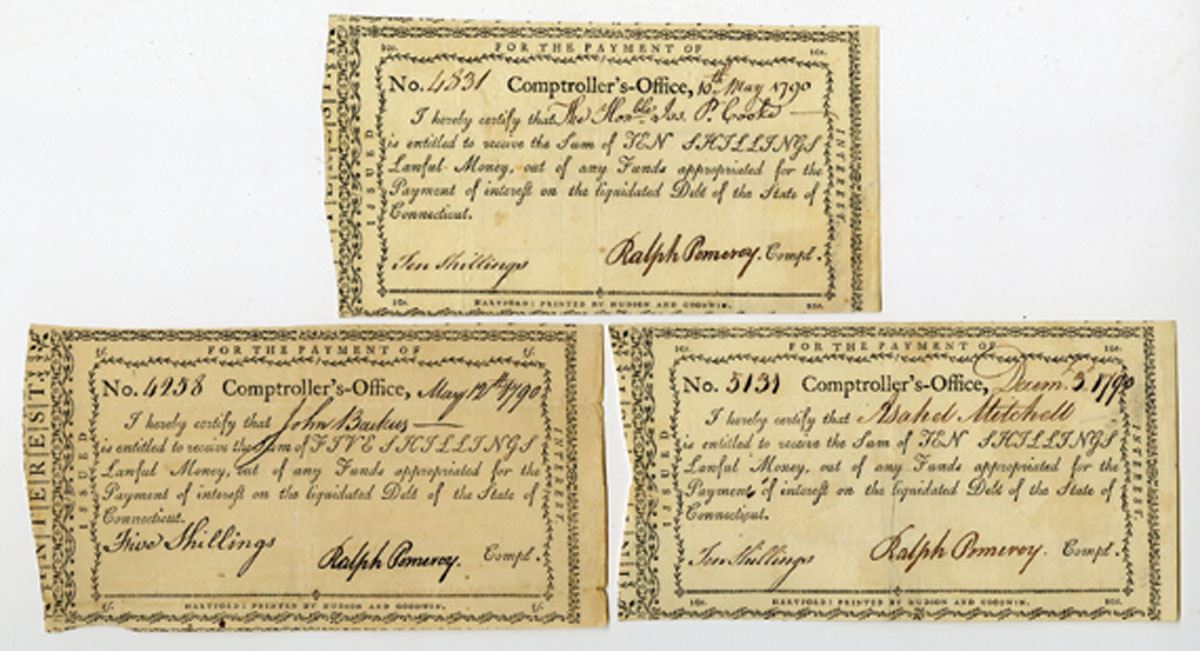 10s. FOR THE PAYMENT OF 10s.
No. 4831 Comptroller's-Office, 10th May 1790
I hereby certify that The Honble Jos. P. Cooke
is entitled to receive the Sum of TEN SHILLINGS
Lawful Money, out of any Funds appropriated for the
Payment of interest on the liquidated Debt of the State of
Connecticut.
Ten Shillings Ralph Pomeroy. Compt.
10s. HARTFORD: PRINTED BY HUDSON AND GOODWIN. 10s.
ISSUED
INTEREST.
5/. FOR THE PAYMENT OF 5/.
No. 4258 Comptroller's-Office, May 12th 1790
I hereby certify that John Backus
is entitled to receive the Sum of FIVE SHILLINGS
Lawful Money, out of any Funds appropriated for the
Payment of interest on the liquidated Debt of the State of
Connecticut.
Five Shillings
Ralph Pomeroy. Compt.
5/. HARTFORD: PRINTED BY HUDSON AND GOODWIN. 5/.
INTEREST
ISSUED
INTEREST.
10s. FOR THE PAYMENT OF 10s.
No. 5131 Comptroller's-Office, Decemr. 3d. 1790
I hereby certify that Asahel Mitchell
is entitled to receive the Sum of TEN SHILLINGS
Lawful Money, out of any Funds appropriated for the
Payment of interest on the liquidated Debt of the State of
Connecticut.
Ten Shillings Ralph Pomeroy. Compt.
10s. HARTFORD: PRINTED BY HUDSON AND GOODWIN. 10s.
ISSUED
INTEREST.